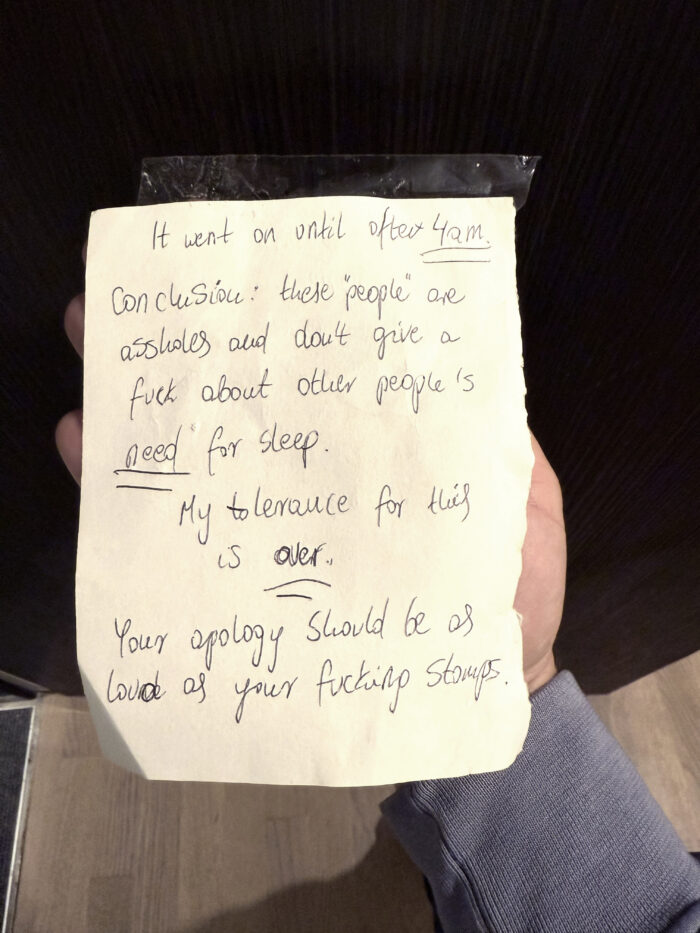 It went on until after 4am.
Conclusion: these "people" are
assholes and don't give a
fuck about other people's
need for sleep.
My tolerance for this
is over.
Your apology should be as
loud as your fucking stomps.